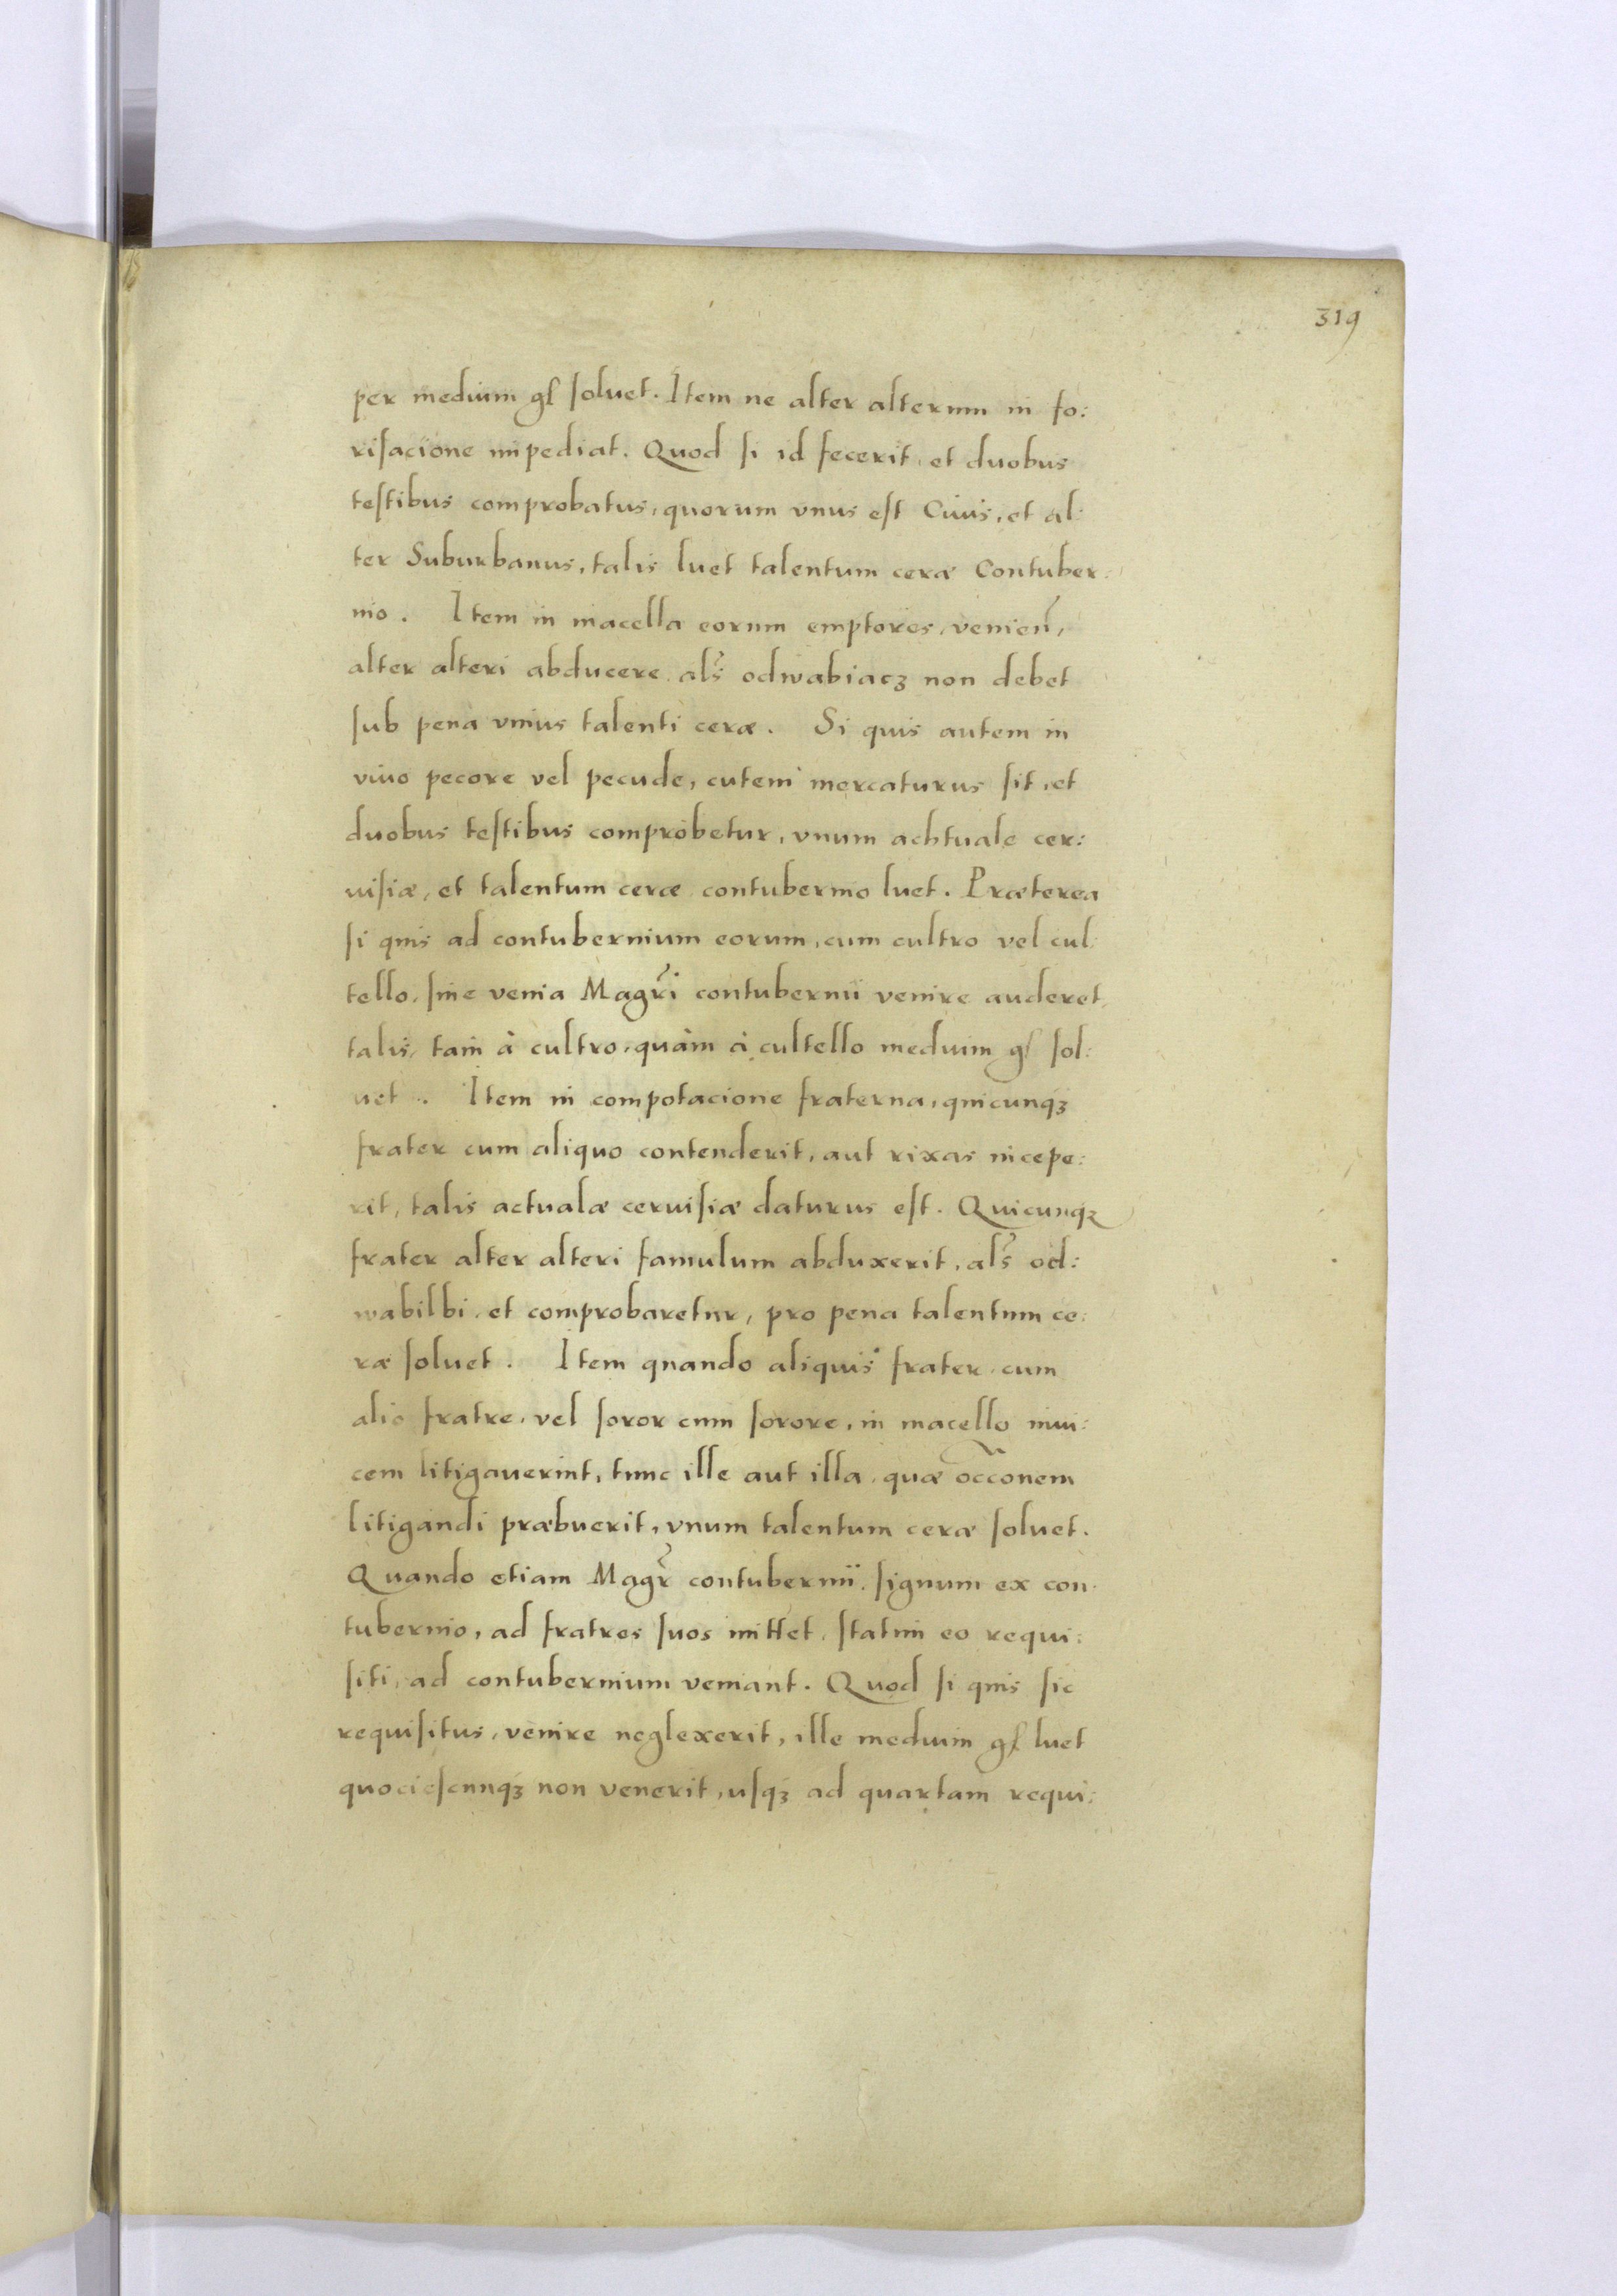 319
per medium gſ ſoluet. Item ne alter alterum in fo:
riſacione impediat. Quod ſi id fecerit, et duobus
teſtibus comprobatus, quorum vnus eſt Ciuis, et al:
ter Suburbanus, talis luet talentum ceræ Contuber:
nio. Item in macella eorum emptores, venien̄,
alter alteri abducere als̄ odwabiacz non debet
ſub pena vnius talenti ceræ. Si quis autem in
viuo pecore vel pecude, cutem mercaturus ſit, et
duobus teſtibus comprobetur, vnum achtuale cer:
uiſiæ, et talentum ceræ contubernio luet. Præterea
ſi quis ad contubernium eorum, cum cultro vel cul:
tello, ſine venia Magr̄i contubernii venire auderet,
talis, tam à cultro, quàm à cultello medium gſ ſol:
uet. Item in compotacione fraterna, quicunqꝫ
frater cum aliquo contenderit, aut rixas incepe:
rit, talis actualæ ceruiſiæ daturus eſt. Quicunqꝫ
frater alter alteri famulum abduxerit, als̄ od:
wabilbi, et comprobaretur, pro pena talentum ce:
ræ ſoluet. Item quando aliquis frater cum
alio fratre, vel ſoror cum ſorore, in macello inui:
cem litigauerint, tunc ille aut illa, quæ occ̄onem
litigandi præbuerit, vnum talentum ceræ ſoluet.
Quando etiam Magr̄ contubernii, ſignum ex con:
tubernio, ad fratres ſuos mittet, ſtatim eo requi:
ſiti, ad contubernium veniant. Quod ſi quis ſic
requiſitus, venire neglexerit, ille medium gſ luet
quocieſcunqꝫ non venerit, uſqꝫ ad quartam requi: